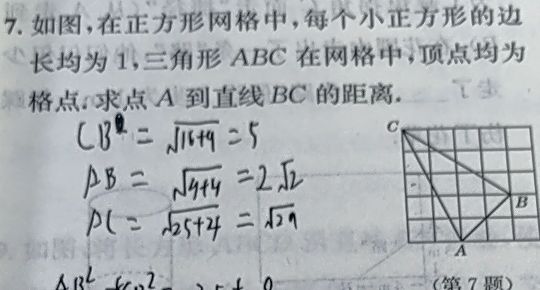 7. 如图,在正方形网格中,每个小正方形的边
长均为 1,三角形 ABC 在网格中,顶点均为
格点. 求点 A 到直线 BC 的距离.
CB = √16+9 = 5
AB = √4+4 = 2√2
AC = √25+4 = √29
C
B
A
(第 7 题)